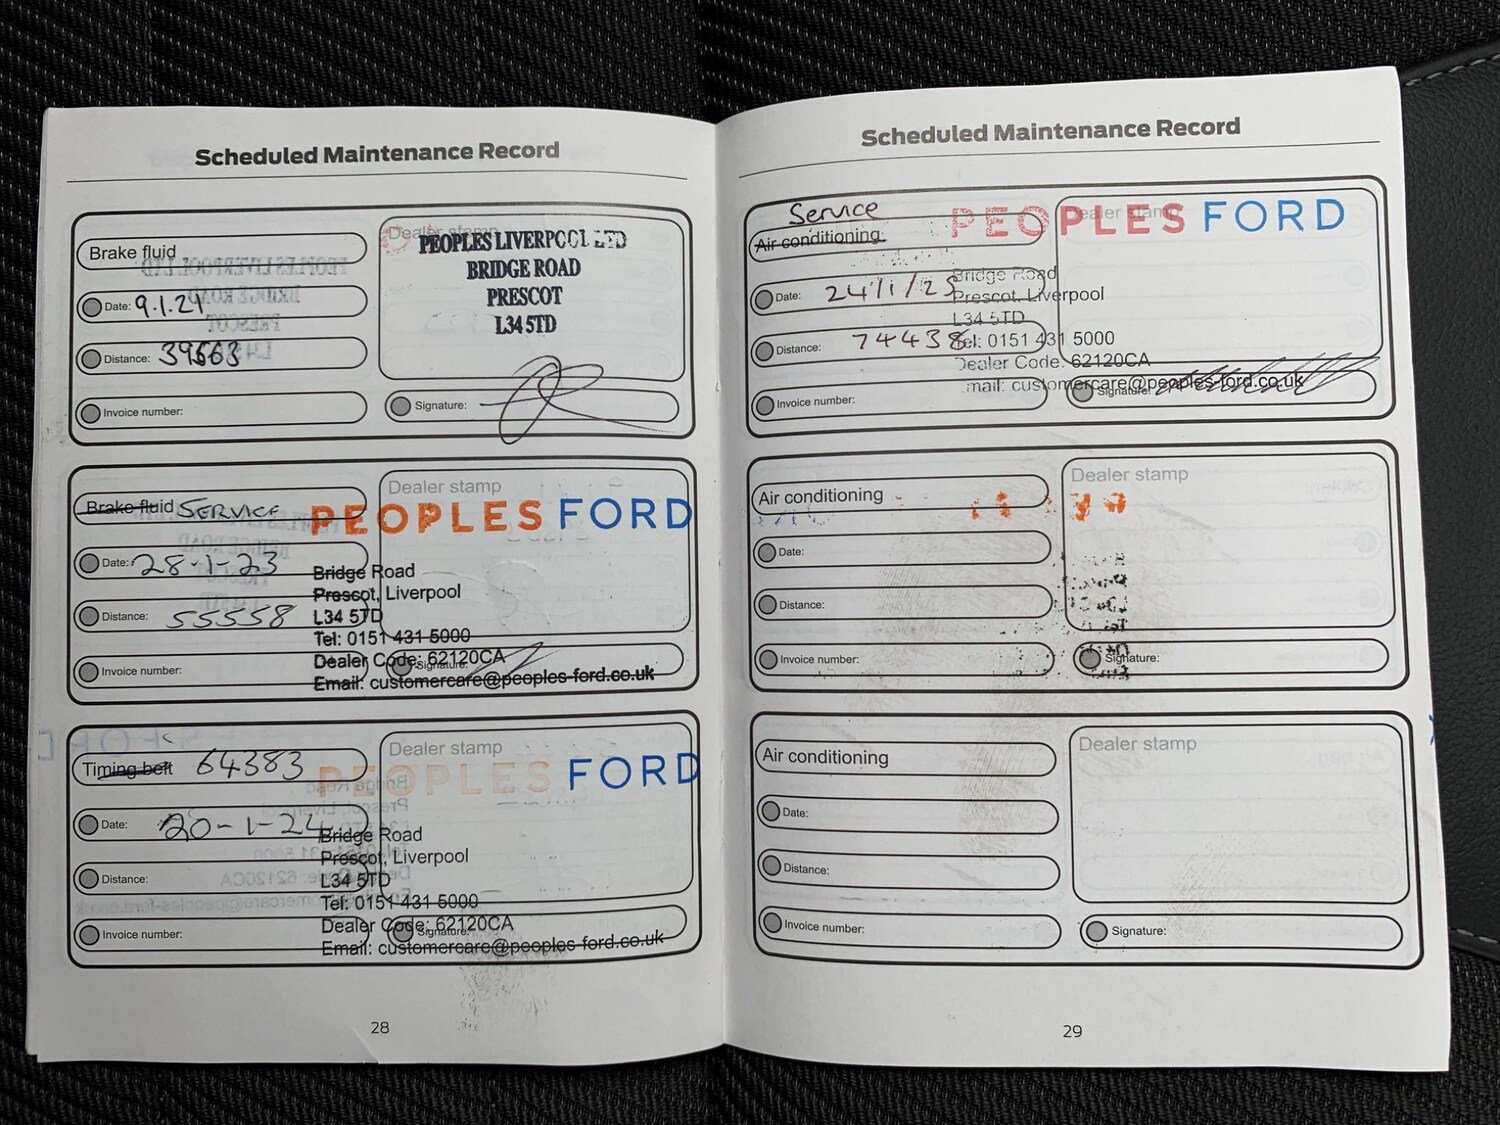 Scheduled Maintenance Record
Brake fluid
Dealer stamp
PEOPLES LIVERPOOL LTD
BRIDGE ROAD
PRESCOT
L34 5TD
Date: 9.1.21
Distance: 39663
Invoice number:
Signature:
Brake fluid SERVICE
Dealer stamp
PEOPLES FORD
Date: 28-1-23
Distance: 55558
Bridge Road
Prescot, Liverpool
L34 5TD
Tel: 0151 431 5000
Dealer Code: 62120CA
Email: customercare@peoples-ford.co.uk
Invoice number:
Signature:
Timing belt 64383
Dealer stamp
PEOPLES FORD
Date: 20-1-24
Distance:
Bridge Road
Prescot, Liverpool
L34 5TD
Tel: 0151 431 5000
Dealer Code: 62120CA
Email: customercare@peoples-ford.co.uk
Invoice number:
Signature:
28
Scheduled Maintenance Record
Service
Air conditioning
Dealer stamp
PEOPLES FORD
Date: 24/1/25
Distance: 74438
Bridge Road
Prescot, Liverpool
L34 5TD
Tel: 0151 431 5000
Dealer Code: 62120CA
Email: customercare@peoples-ford.co.uk
Invoice number:
Signature:
Air conditioning
Dealer stamp
Date:
Distance:
Invoice number:
Signature:
Air conditioning
Dealer stamp
Date:
Distance:
Invoice number:
Signature:
29